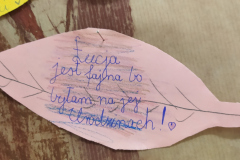 Łucja
jest fajna bo
byłam na jej
Urodzinach!